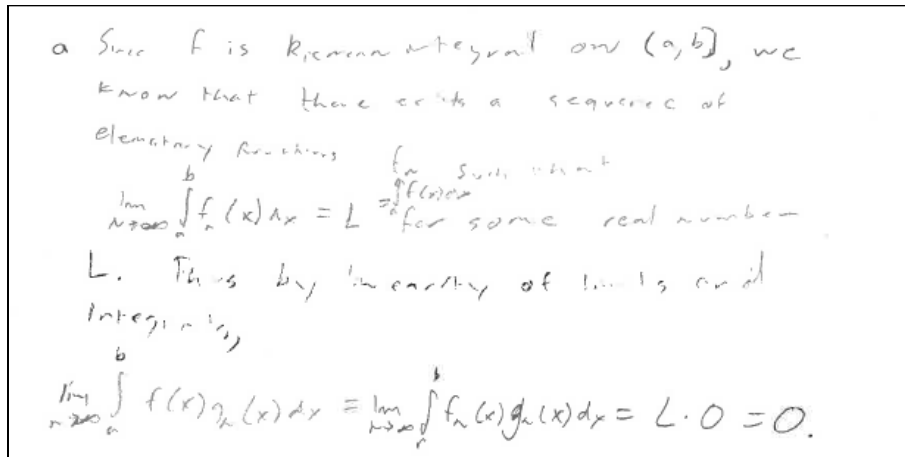 a Since f is Riemann integral on (a,b], we
know that there exists a sequence of
elementary functions f_n such that
lim_{n→∞} ∫_a^b f_n(x) dx = L = ∫_a^b f(x)dx for some real number
L. Thus by linearity of limits and
integrals,
lim_{n→∞} ∫_a^b f(x) g_n(x) dx = lim_{n→∞} ∫_a^b f_n(x) g_n(x) dx = L · 0 = 0.